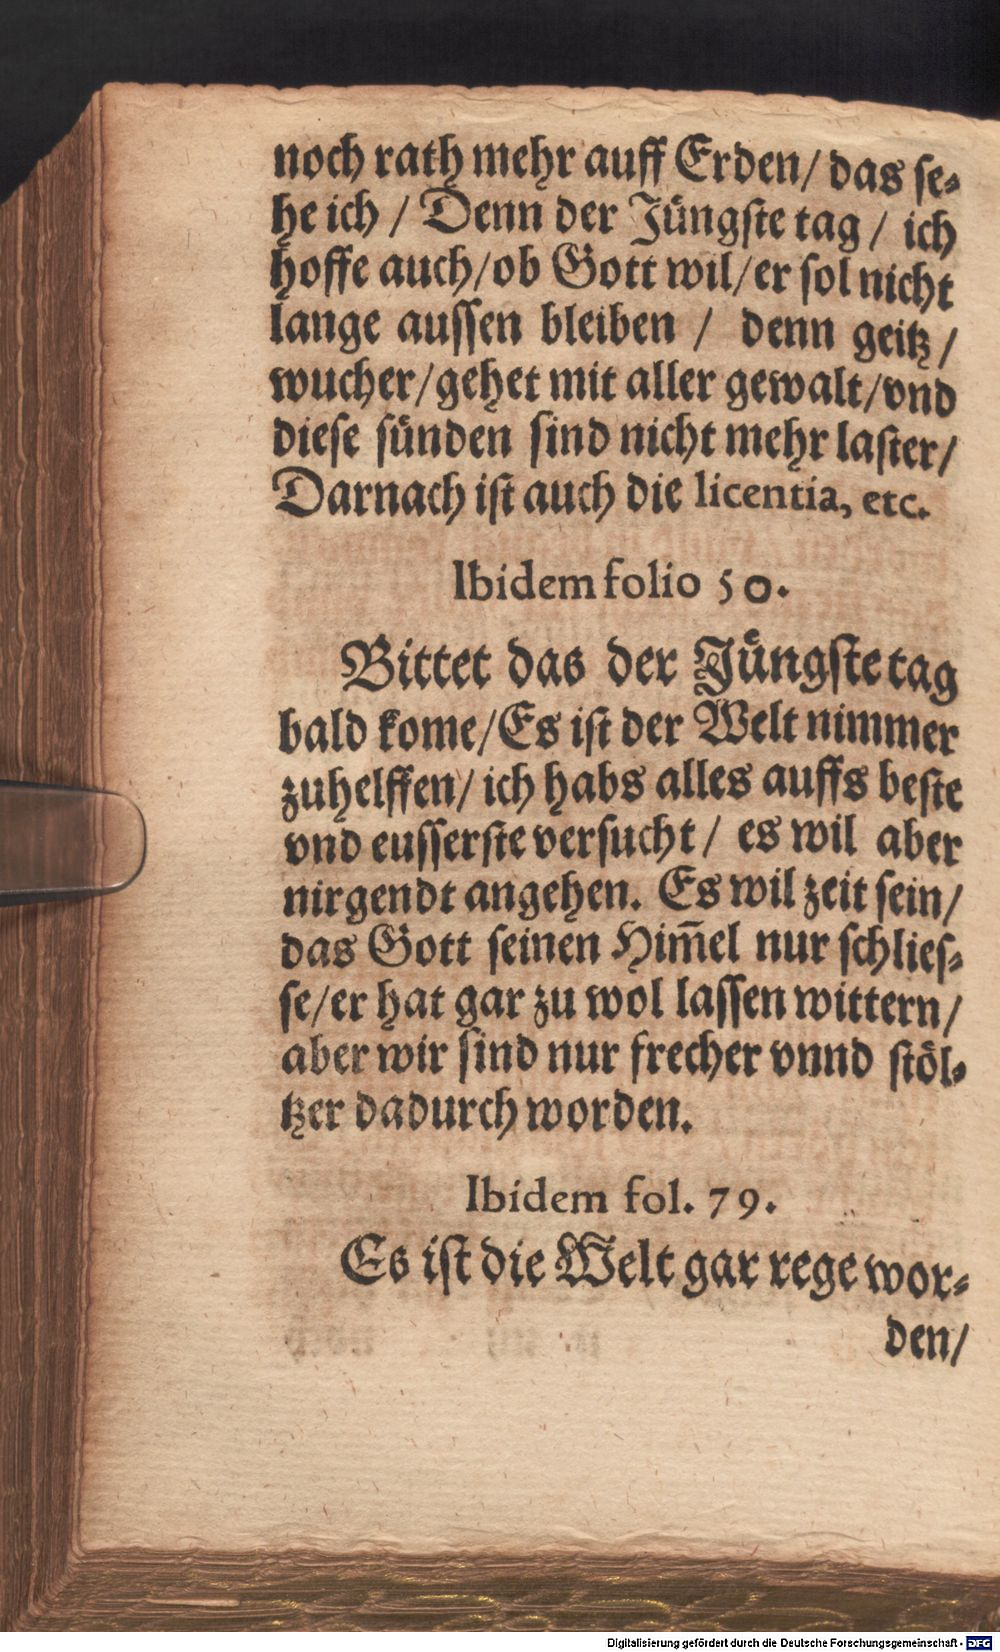 noch rath mehr auff Erden/ das se-
he ich / Denn der Jüngste tag / ich
hoffe auch/ob Gott wil/er sol nicht
lange aussen bleiben / denn geitz/
wucher/gehet mit aller gewalt/vnd
diese sünden sind nicht mehr laster/
Darnach ist auch die licentia, etc.
Ibidem folio 50.
Bittet das der Jüngste tag
bald kome/Es ist der Welt nimmer
zuhelffen/ ich habs alles auffs beste
vnd eusserste versucht/ es wil aber
nirgendt angehen. Es wil zeit sein/
das Gott seinen Him̄el nur schlies-
se/er hat gar zu wol lassen wittern/
aber wir sind nur frecher vnnd stöl-
tzer dadurch worden.
Ibidem fol. 79.
Es ist die Welt gar rege wor-
den/
Digitalisierung gefördert durch die Deutsche Forschungsgemeinschaft - DFG